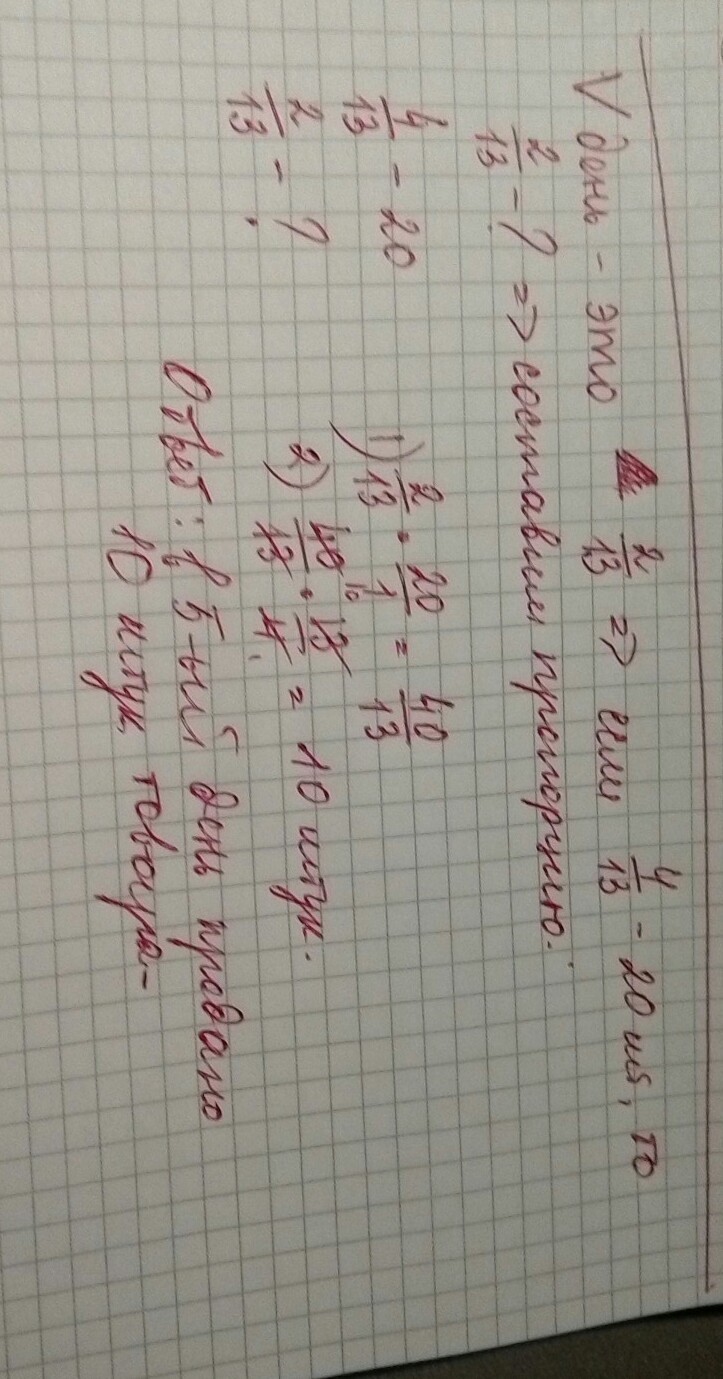 V день - это 2/13 => если 4/13 - 20 шт, то
2/13 - ? => составим пропорцию.
4/13 - 20
2/13 - ?
1) 2/13 · 20/1 = 40/13
2) 40/13 · 13/4 = 10 штук.
10
Ответ: в 5-ый день продано
10 штук товара.